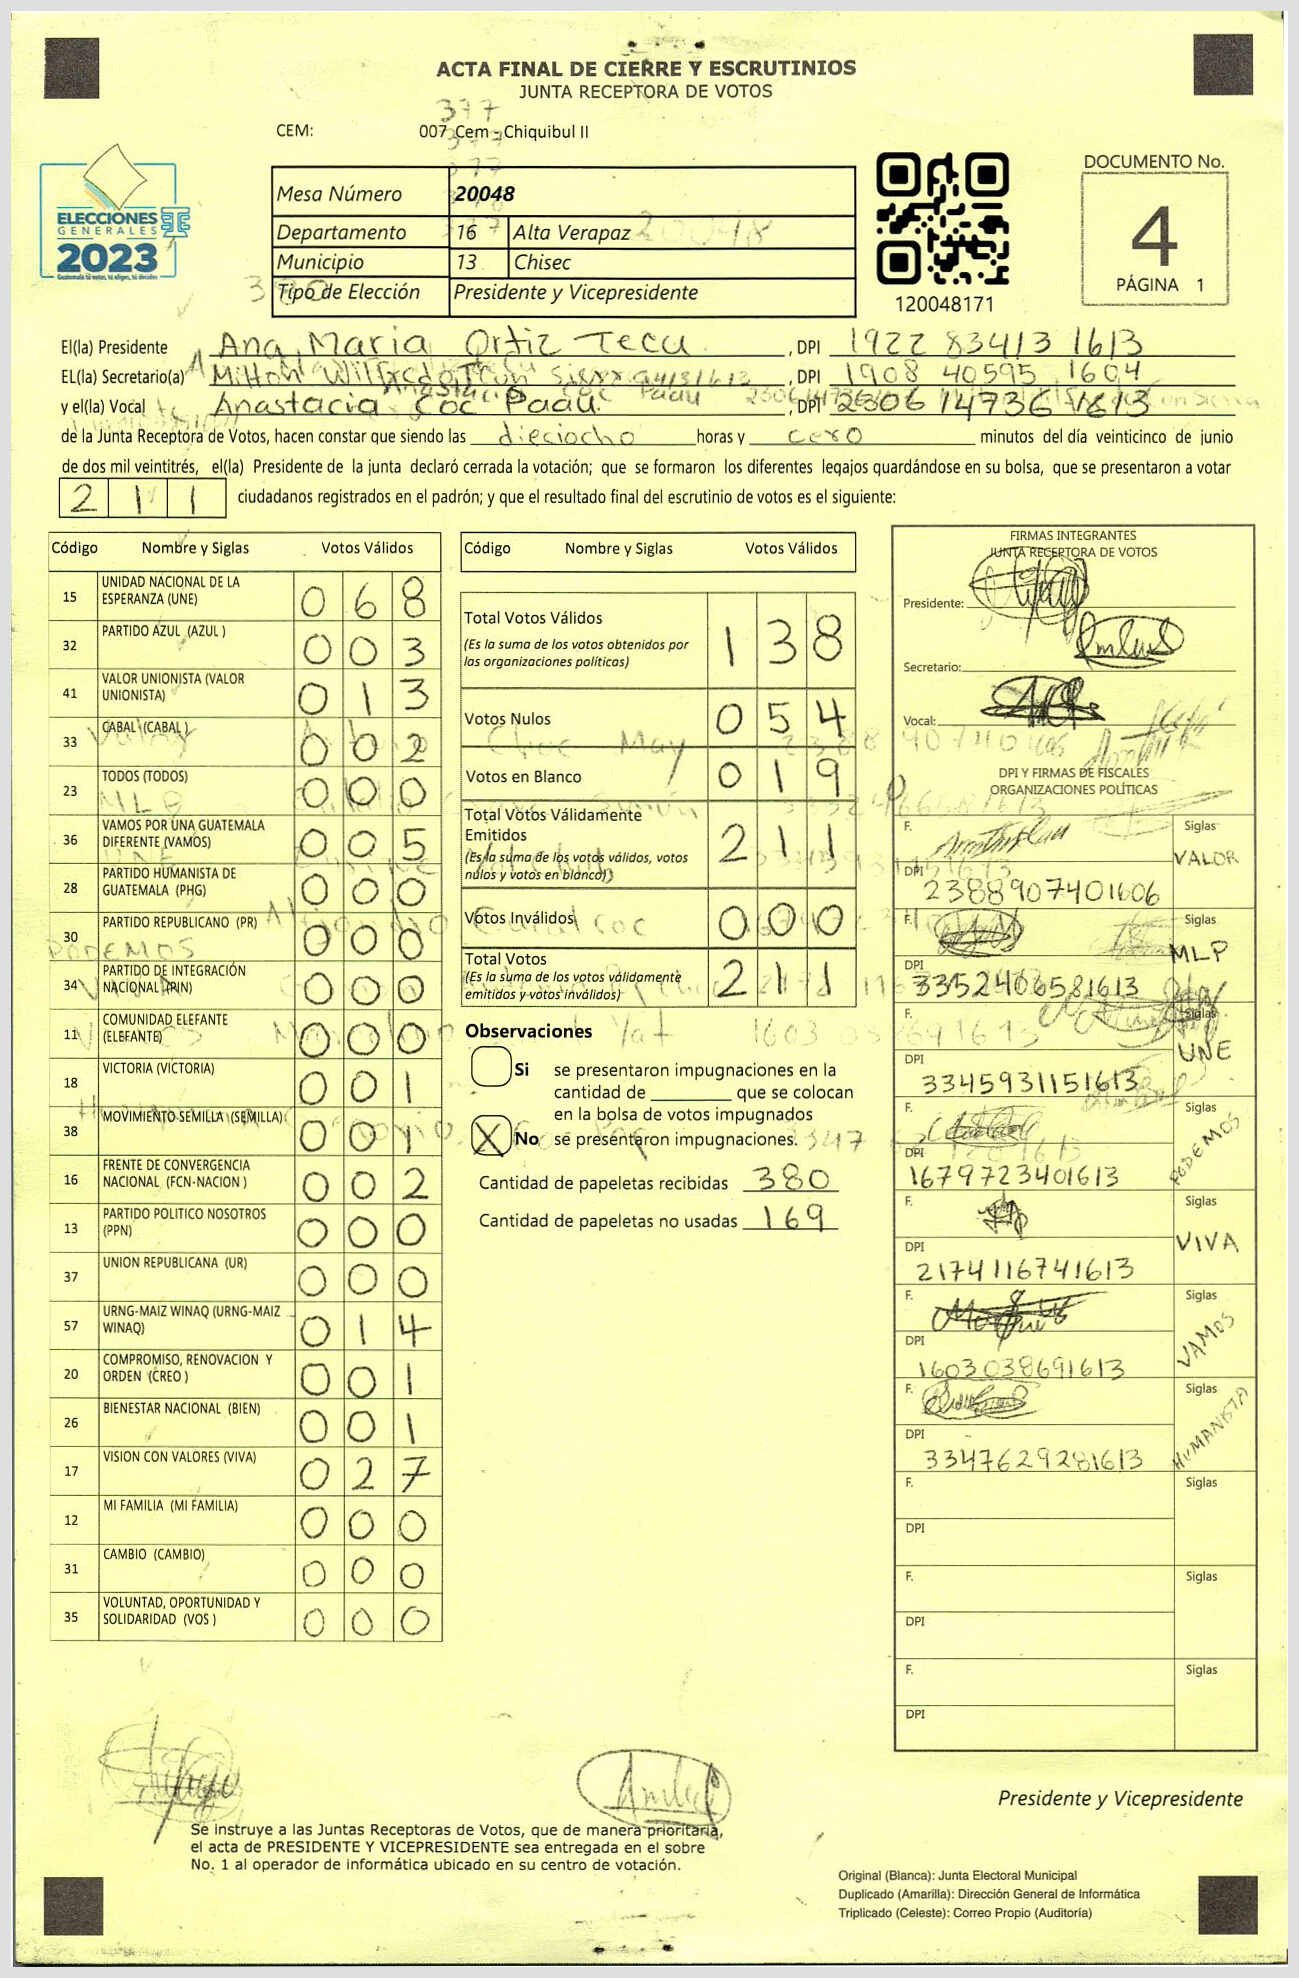 ACTA FINAL DE CIERRE Y ESCRUTINIOS
JUNTA RECEPTORA DE VOTOS
CEM: 007 Cem - Chiquibul II
ELECCIONES
GENERALES
2023
Mesa Número 20048
Departamento 16 Alta Verapaz
Municipio 13 Chisec
Tipo de Elección Presidente y Vicepresidente
120048171
DOCUMENTO No.
4
PÁGINA 1
El(la) Presidente Ana Maria Ortiz Tecu, DPI 1922 83413 1613
EL(la) Secretario(a) Milton Wilfredo, DPI 1908 40595 1604
y el(la) Vocal Anastacia Coc Paau, DPI 2306 14736 1613
de la Junta Receptora de Votos, hacen constar que siendo las dieciocho horas y cero minutos del día veinticinco de junio
de dos mil veintitrés, el(la) Presidente de la junta declaró cerrada la votación; que se formaron los diferentes legajos guardándose en su bolsa, que se presentaron a votar
211 ciudadanos registrados en el padrón; y que el resultado final del escrutinio de votos es el siguiente:
Código Nombre y Siglas Votos Válidos
15 UNIDAD NACIONAL DE LA ESPERANZA (UNE) 068
32 PARTIDO AZUL (AZUL ) 003
41 VALOR UNIONISTA (VALOR UNIONISTA) 013
33 CABAL (CABAL ) 002
23 TODOS (TODOS) 000
36 VAMOS POR UNA GUATEMALA DIFERENTE (VAMOS) 005
28 PARTIDO HUMANISTA DE GUATEMALA (PHG) 000
30 PARTIDO REPUBLICANO (PR) 000
34 PARTIDO DE INTEGRACIÓN NACIONAL (PIN) 000
11 COMUNIDAD ELEFANTE (ELEFANTE) 000
18 VICTORIA (VICTORIA) 001
38 MOVIMIENTO SEMILLA (SEMILLA) 001
16 FRENTE DE CONVERGENCIA NACIONAL (FCN-NACION ) 002
13 PARTIDO POLITICO NOSOTROS (PPN) 000
37 UNION REPUBLICANA (UR) 000
57 URNG-MAIZ WINAQ (URNG-MAIZ WINAQ) 014
20 COMPROMISO, RENOVACION Y ORDEN (CREO ) 001
26 BIENESTAR NACIONAL (BIEN) 001
17 VISION CON VALORES (VIVA) 027
12 MI FAMILIA (MI FAMILIA) 000
31 CAMBIO (CAMBIO) 000
35 VOLUNTAD, OPORTUNIDAD Y SOLIDARIDAD (VOS ) 000
Código Nombre y Siglas Votos Válidos
Total Votos Válidos 138
(Es la suma de los votos obtenidos por
las organizaciones políticas)
Votos Nulos 054
Votos en Blanco 019
Total Votos Válidamente
Emitidos 211
(Es la suma de los votos válidos, votos
nulos y votos en blanco)
Votos Inválidos 000
Total Votos 211
(Es la suma de los votos válidamente
emitidos y votos inválidos)
Observaciones
Si se presentaron impugnaciones en la
cantidad de ________ que se colocan
en la bolsa de votos impugnados
X No se presentaron impugnaciones.
Cantidad de papeletas recibidas 380
Cantidad de papeletas no usadas 169
FIRMAS INTEGRANTES
JUNTA RECEPTORA DE VOTOS
Presidente:
Secretario:
Vocal:
DPI Y FIRMAS DE FISCALES
ORGANIZACIONES POLÍTICAS
F. Siglas VALOR
DPI 2388907401606
F. Siglas MLP
DPI 3352406581613
F. Siglas UNE
DPI 3345931151613
F. Siglas PODEMOS
DPI 1679723401613
F. Siglas VIVA
DPI 2174116741613
F. Siglas VAMOS
DPI 1603038691613
F. Siglas HUMANISTA
DPI 3347629281613
F. Siglas
DPI
F. Siglas
DPI
F. Siglas
DPI
Presidente y Vicepresidente
Se instruye a las Juntas Receptoras de Votos, que de manera prioritaria,
el acta de PRESIDENTE Y VICEPRESIDENTE sea entregada en el sobre
No. 1 al operador de informática ubicado en su centro de votación.
Original (Blanca): Junta Electoral Municipal
Duplicado (Amarilla): Dirección General de Informática
Triplicado (Celeste): Correo Propio (Auditoría)